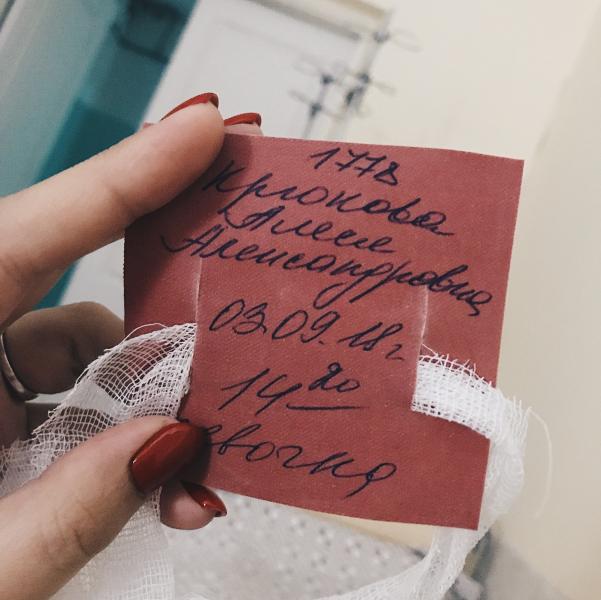 1778
Крюкова
Алеся
Александровна
03.09.18г
14 20
евочка